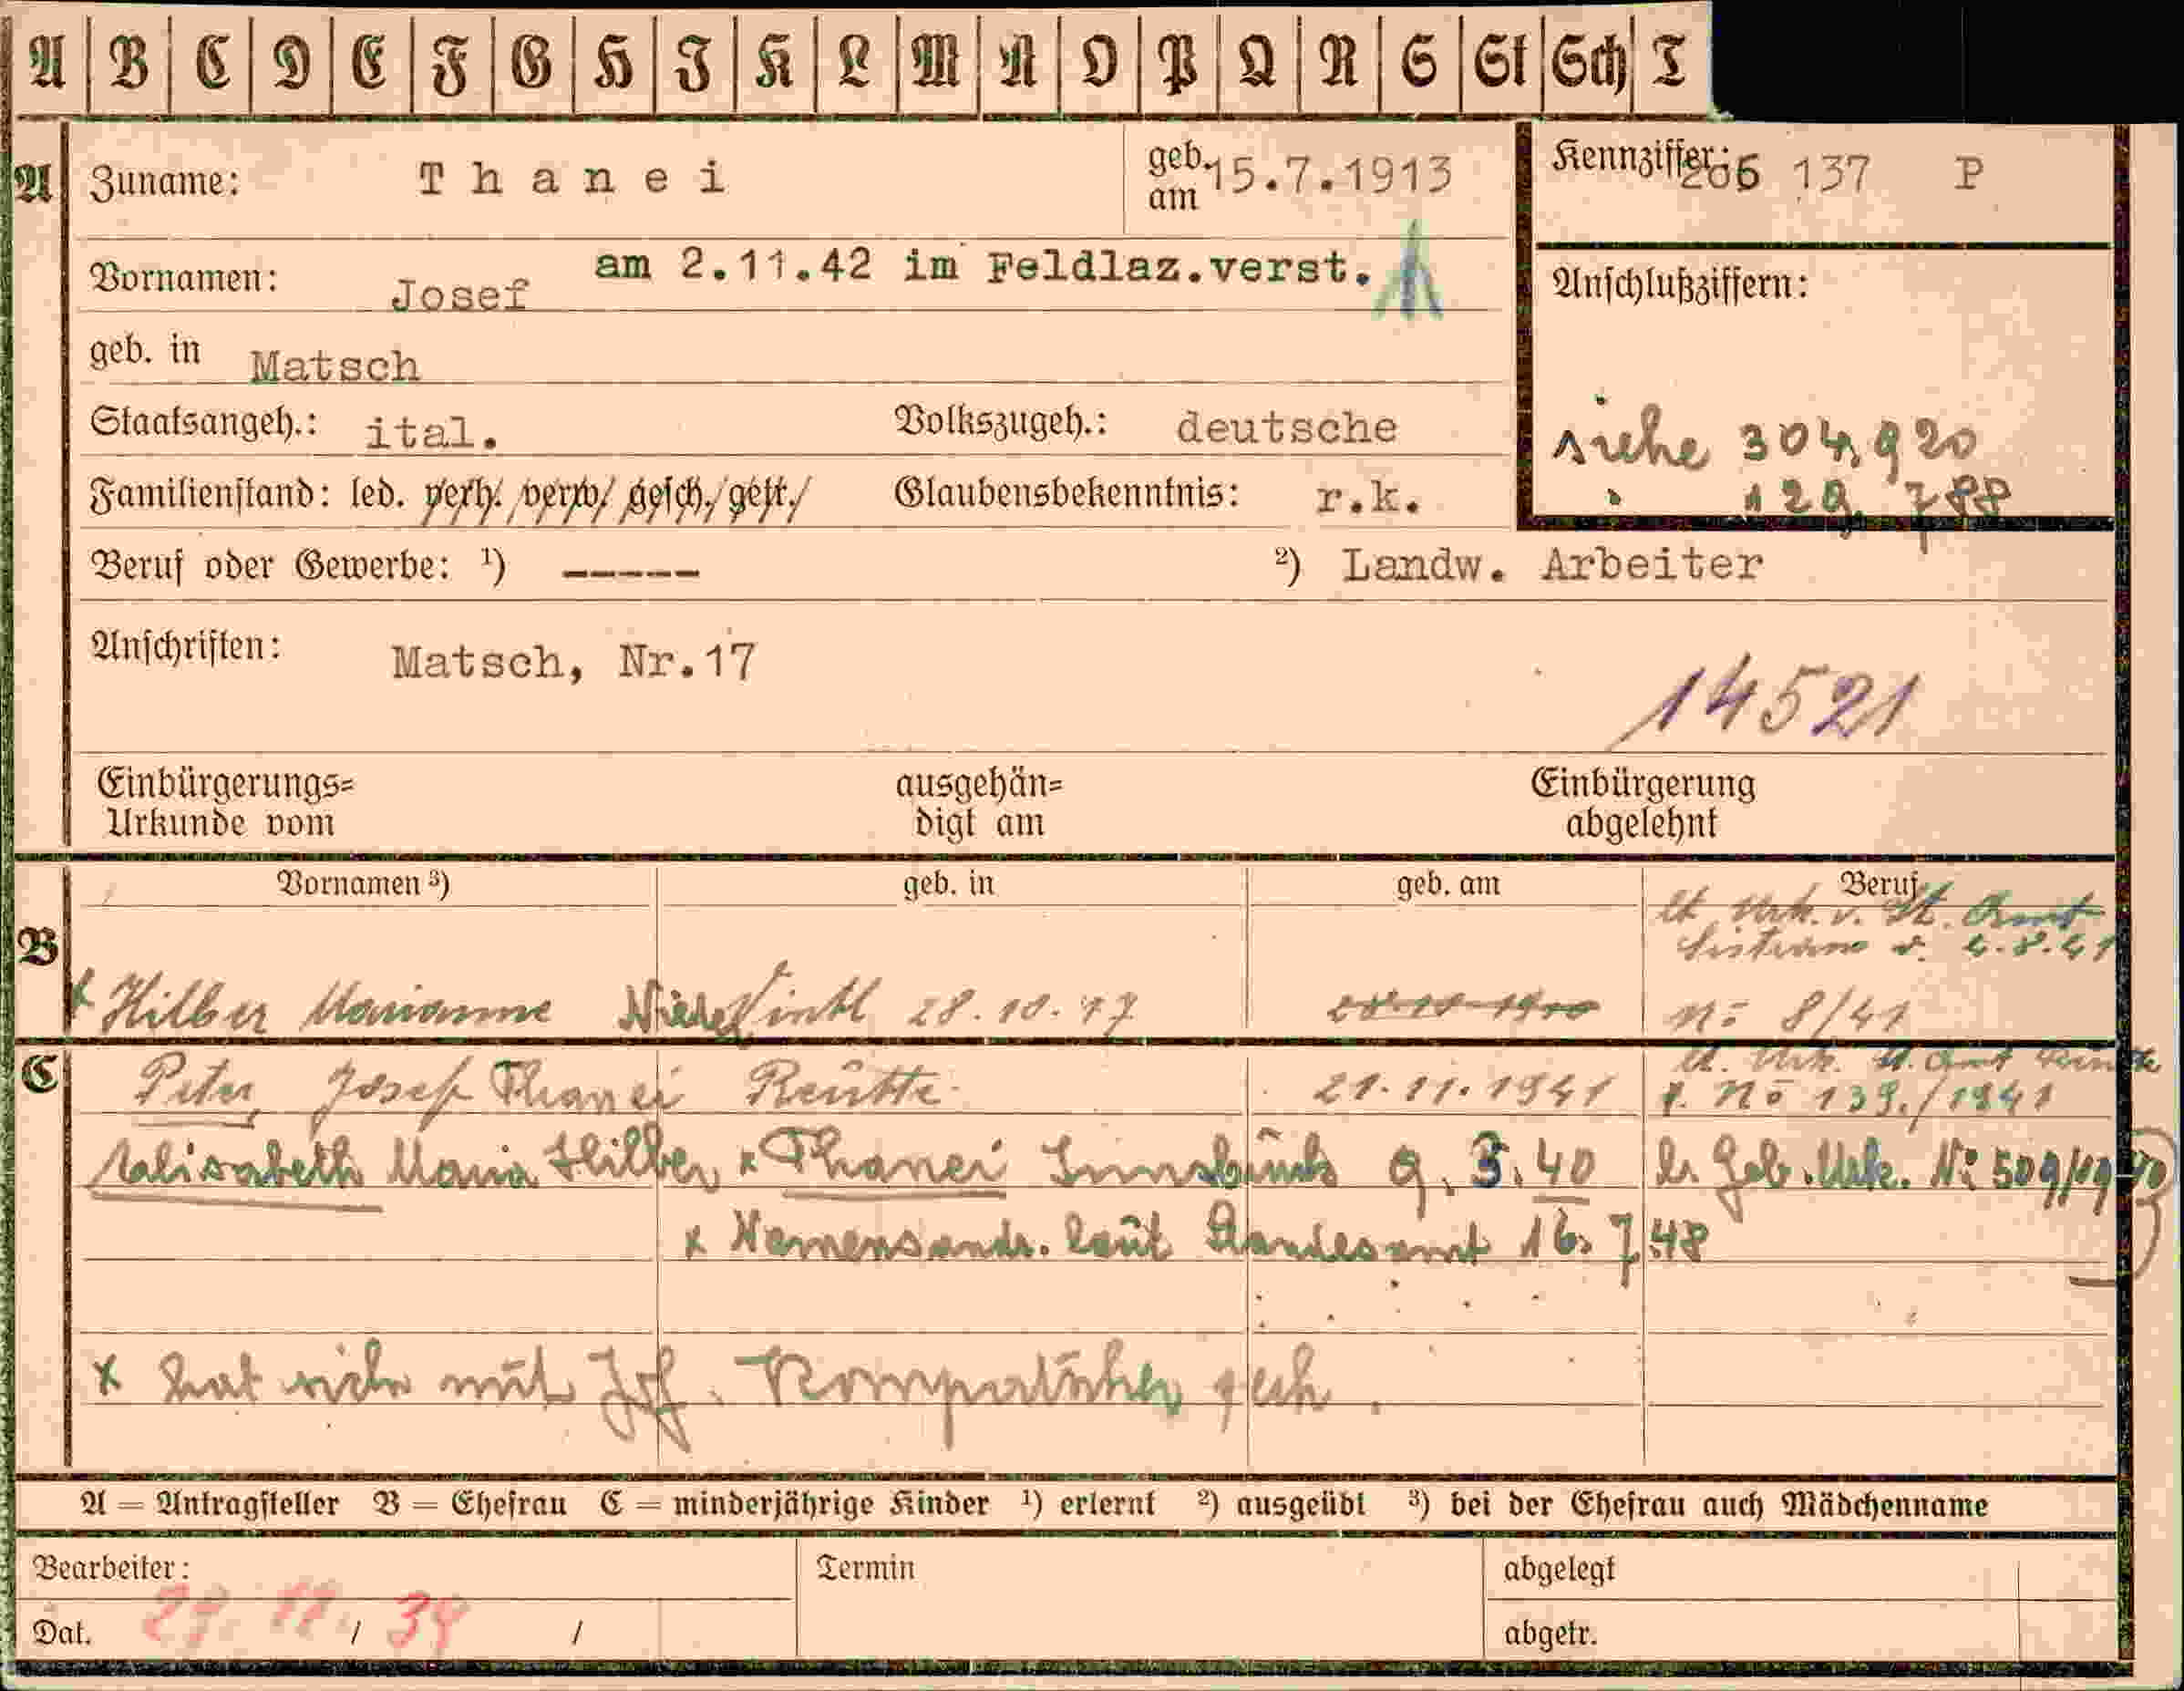 A B C D E F G H I K L M N O P Q R S St Sch T
A Zuname: Thanei geb. am 15.7.1913 Kennziffer: 206 137 P
Vornamen: Josef am 2.11.42 im Feldlaz.verst. Anschlußziffern:
geb. in Matsch
Staatsangeh.: ital. Volkszugeh.: deutsche siehe 304,920
Familienstand: led. verh. verw. gesch. getr. Glaubensbekenntnis: r.k. 129.788
Beruf oder Gewerbe: ¹) ----- ²) Landw. Arbeiter
Anschriften: Matsch, Nr.17
14521
Einbürgerungs= ausgehän= Einbürgerung
Urkunde vom digt am abgelehnt
Vornamen ³) geb. in geb. am Beruf
lt. Urk. v. St. Amt
B v. 4.8.41
x Hilber Marianne Niedervintl 28.10.17 28.10.1900 No 8/41
C Peter Josef Thanei Reutte 21.11.1941 lt. Urk. St. Amt Reutte
No 139./1941
Maria Hilber x Thanei Innsbruck 9.3.40 Geb. Urk. No 509/1940
x Namensändr. laut Standesamt 16.7.48
x hat sich mit Jos. Kompatscher
A = Antragsteller B = Ehefrau C = minderjährige Kinder ¹) erlernt ²) ausgeübt ³) bei der Ehefrau auch Mädchenname
Bearbeiter: Termin abgelegt
Dat. / 39 / abgetr.